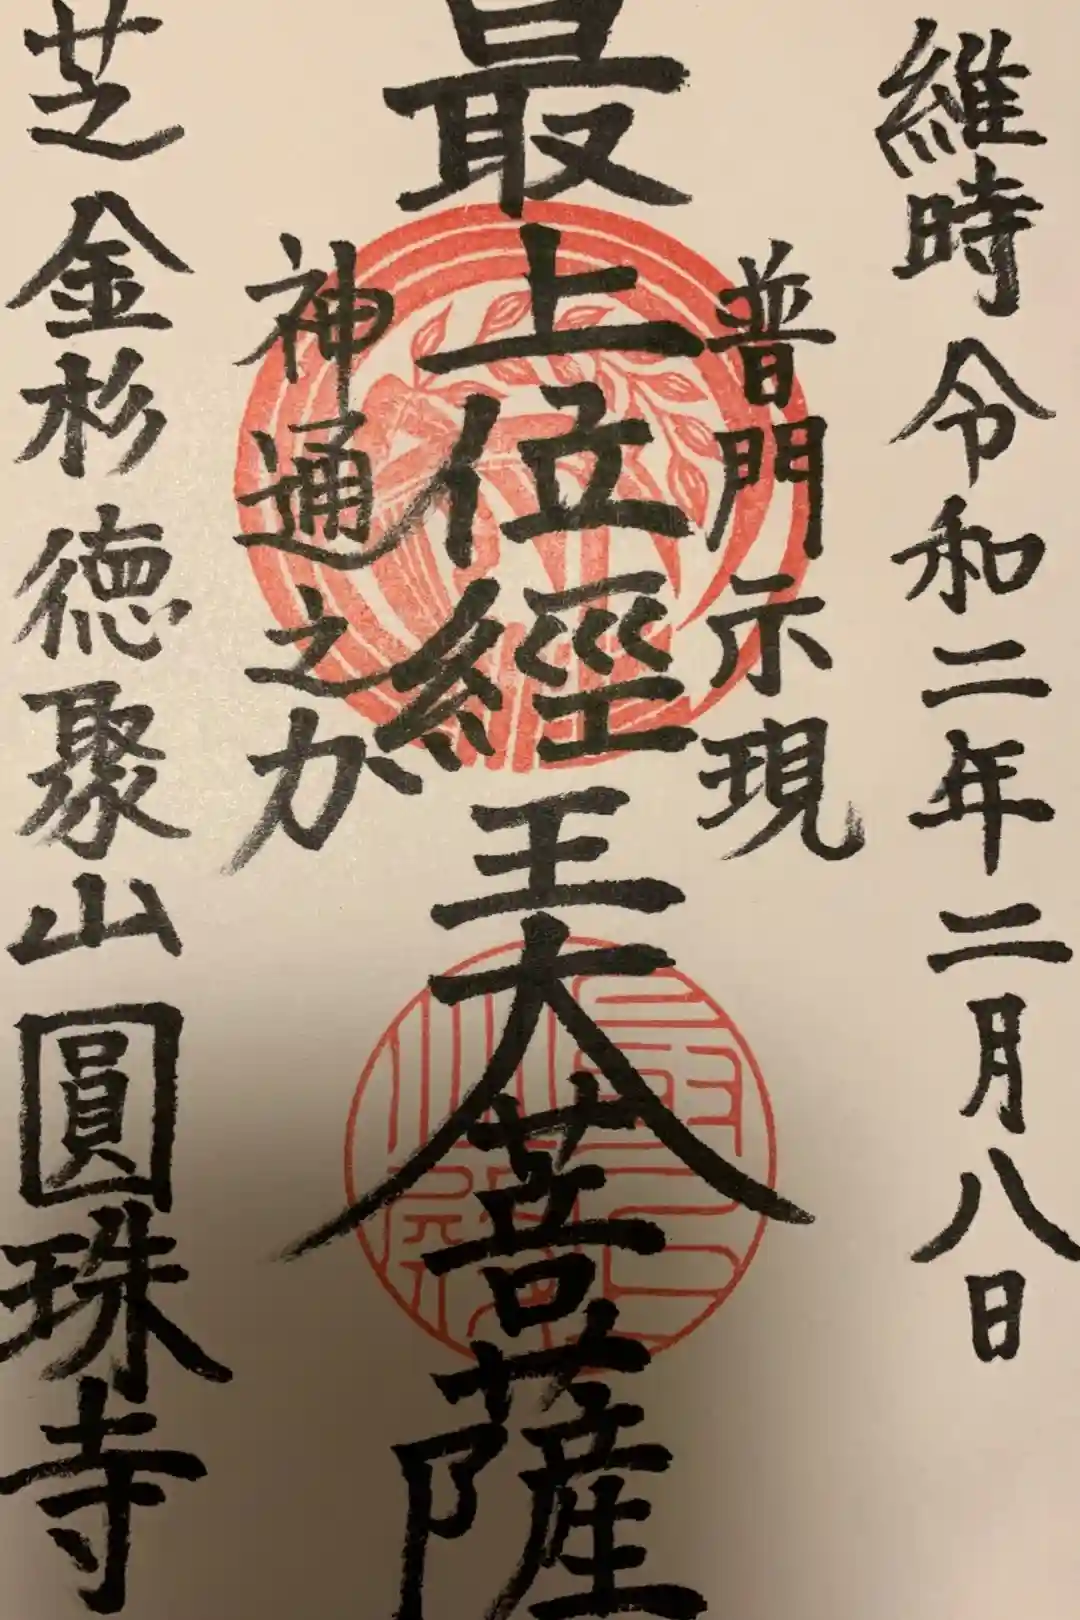 維時令和二年二月八日
普門示現
最上位經王大菩薩
神通之力
芝金杉徳聚山圓珠寺